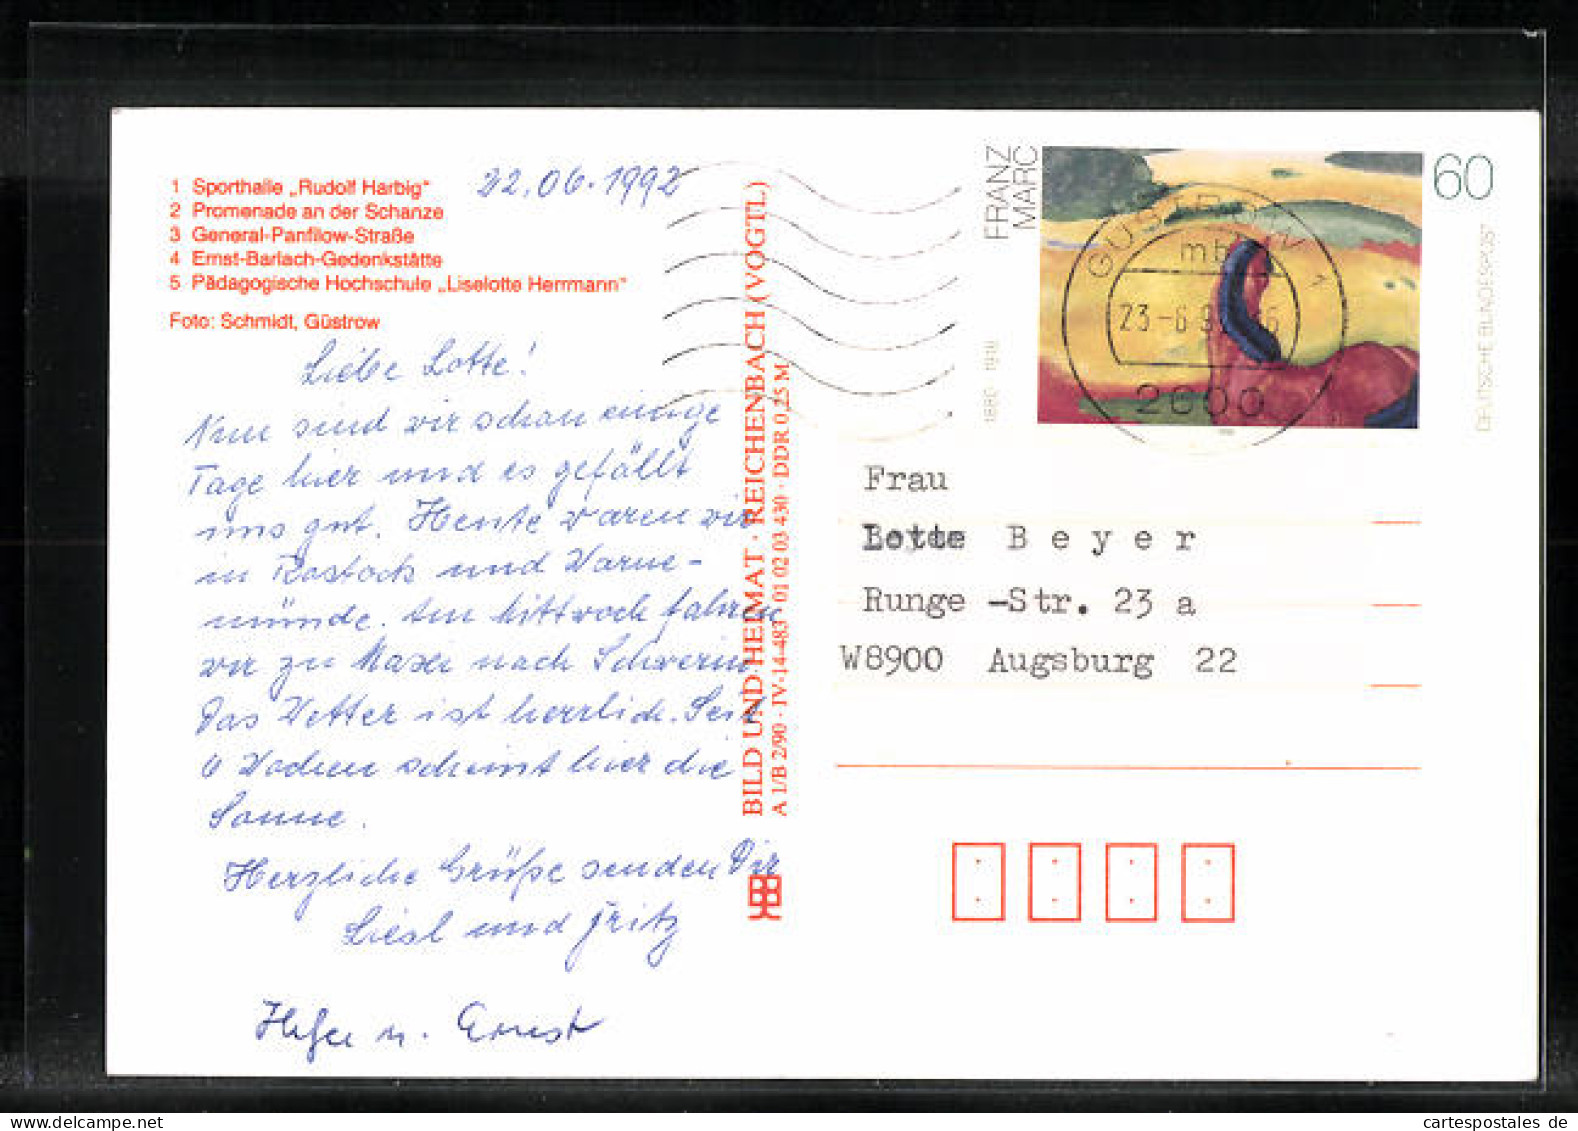 1 Sporthalle „Rudolf Harbig“
2 Promenade an der Schanze
3 General-Panfilow-Straße
4 Ernst-Barlach-Gedenkstätte
5 Pädagogische Hochschule „Liselotte Herrmann“
Foto: Schmidt, Güstrow
22.06.1992
Liebe Lotte!
Nun sind wir schon einige
Tage hier und es gefällt
uns gut. Heute waren wir
in Rostock und Warne-
münde. Am Mittwoch fahren
wir zu nach Schwerin
Das Wetter ist herrlich. Seit
6 Wochen scheint hier die
Sonne.
Herzliche Grüße senden Dir
Liesl und Fritz
u. Ernst
BILD UND HEIMAT · REICHENBACH (VOGTL)
A 1/B 2/90 · IV-14-483 01 02 03 430 · DDR 0,25 M
FRANZ
MARC
1880 - 1916
60
DEUTSCHE BUNDESPOST
GÜSTROW 1
mb
23-6.9
2600
Frau
Lotte Beyer
Runge -Str. 23 a
W8900 Augsburg 22
cartespostales de